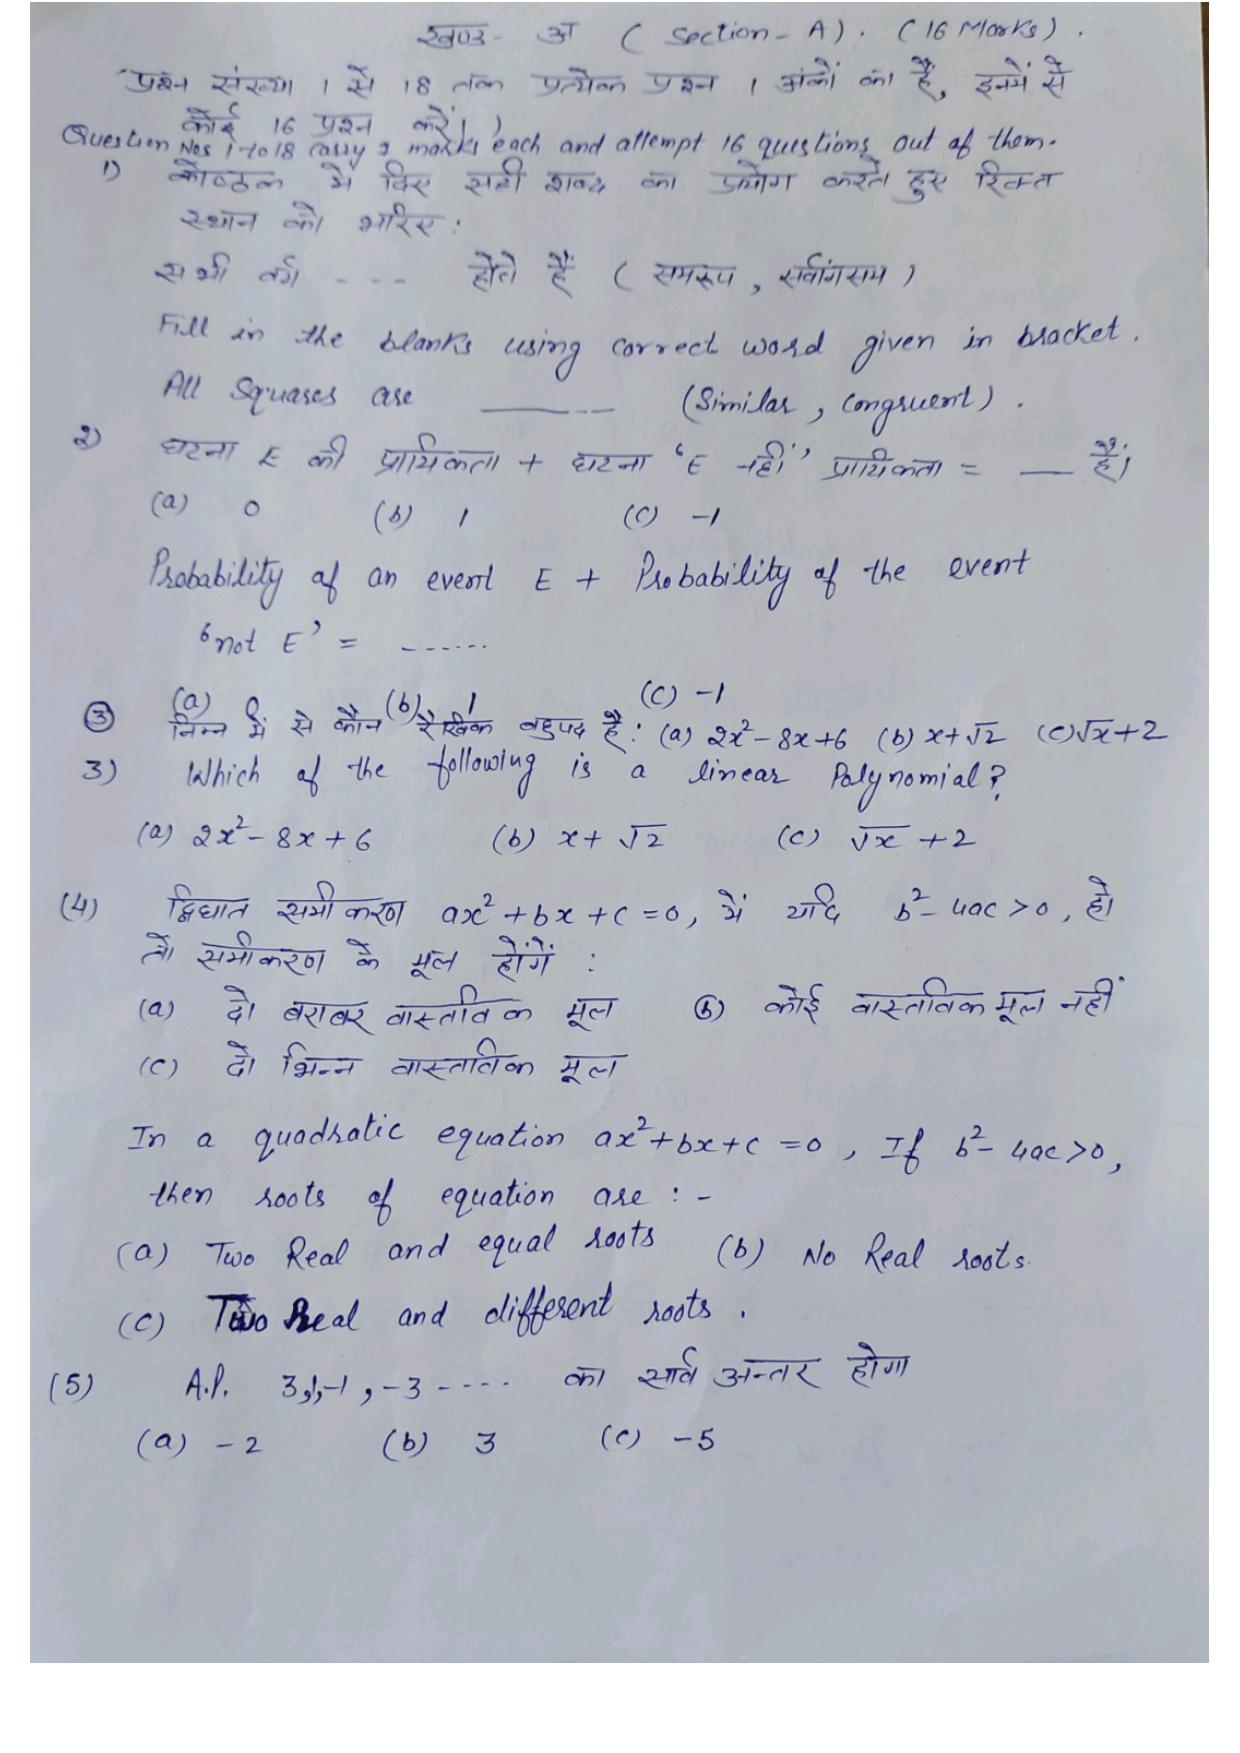 खण्ड- अ ( Section - A). (16 Marks).
प्रश्न संख्या 1 से 18 तक प्रत्येक प्रश्न 1 अंकों का है, इनमें से
कोई 16 प्रश्न करें।
Question Nos 1 to 18 carry 1 marks each and attempt 16 questions out of them.
1) कोष्ठक में दिए सही शब्द का प्रयोग करते हुए रिक्त
स्थान को भरिए :
सभी वर्ग - - - - होते हैं ( समरूप , सर्वांगसम )
Fill in the blanks using correct word given in bracket.
All Squares are ______ (Similar , Congruent).
2) घटना E की प्रायिकता + घटना 'E नहीं' प्रायिकता = __ है।
(a) 0 (b) 1 (c) -1
Probability of an event E + Probability of the event
'not E' = ------
(a) 0 (b) 1 (c) -1
③ निम्न में से कौन रैखिक बहुपद है: (a) 2x²-8x+6 (b) x+√2 (c) √x+2
3) Which of the following is a linear Polynomial?
(a) 2x²-8x+6 (b) x+√2 (c) √x+2
(4) द्विघात समीकरण ax²+bx+c=0, में यदि b²-4ac>0, हो
तो समीकरण के मूल होंगें :
(a) दो बराबर वास्तविक मूल (b) कोई वास्तविक मूल नहीं
(c) दो भिन्न वास्तविक मूल
In a quadratic equation ax²+bx+c=0, If b²-4ac>0,
then roots of equation are : -
(a) Two Real and equal roots (b) No Real roots.
(c) Two Real and different roots.
(5) A.P. 3,1,-1,-3 ----- का सार्व अन्तर होगा
(a) -2 (b) 3 (c) -5